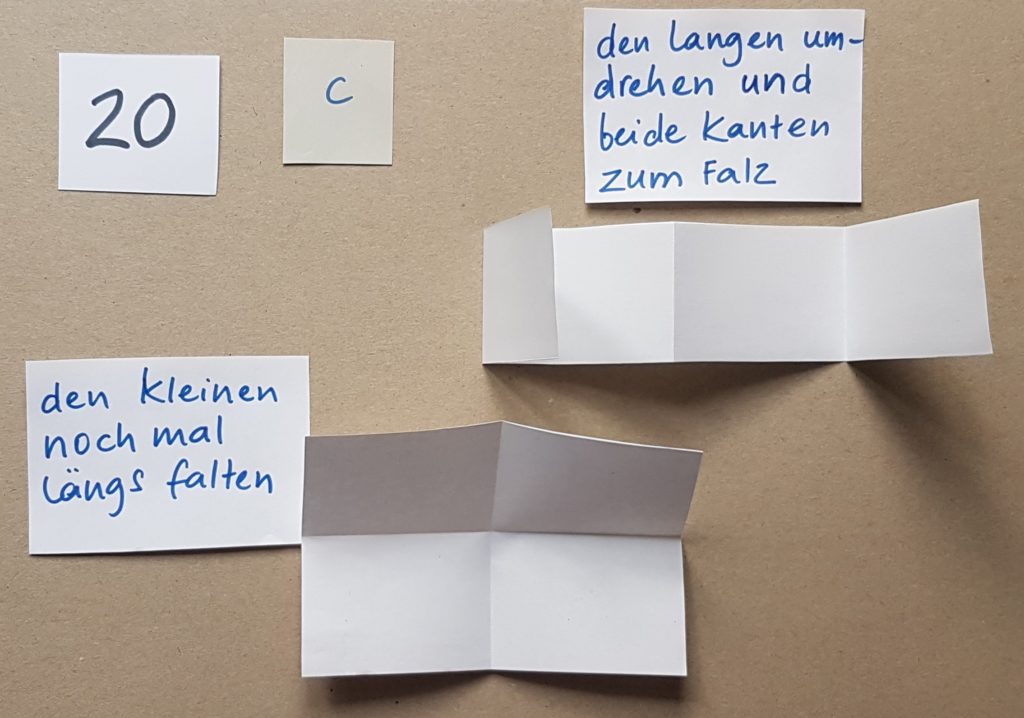 20
c
den langen um-
drehen und
beide Kanten
zum Falz
den kleinen
noch mal
längs falten